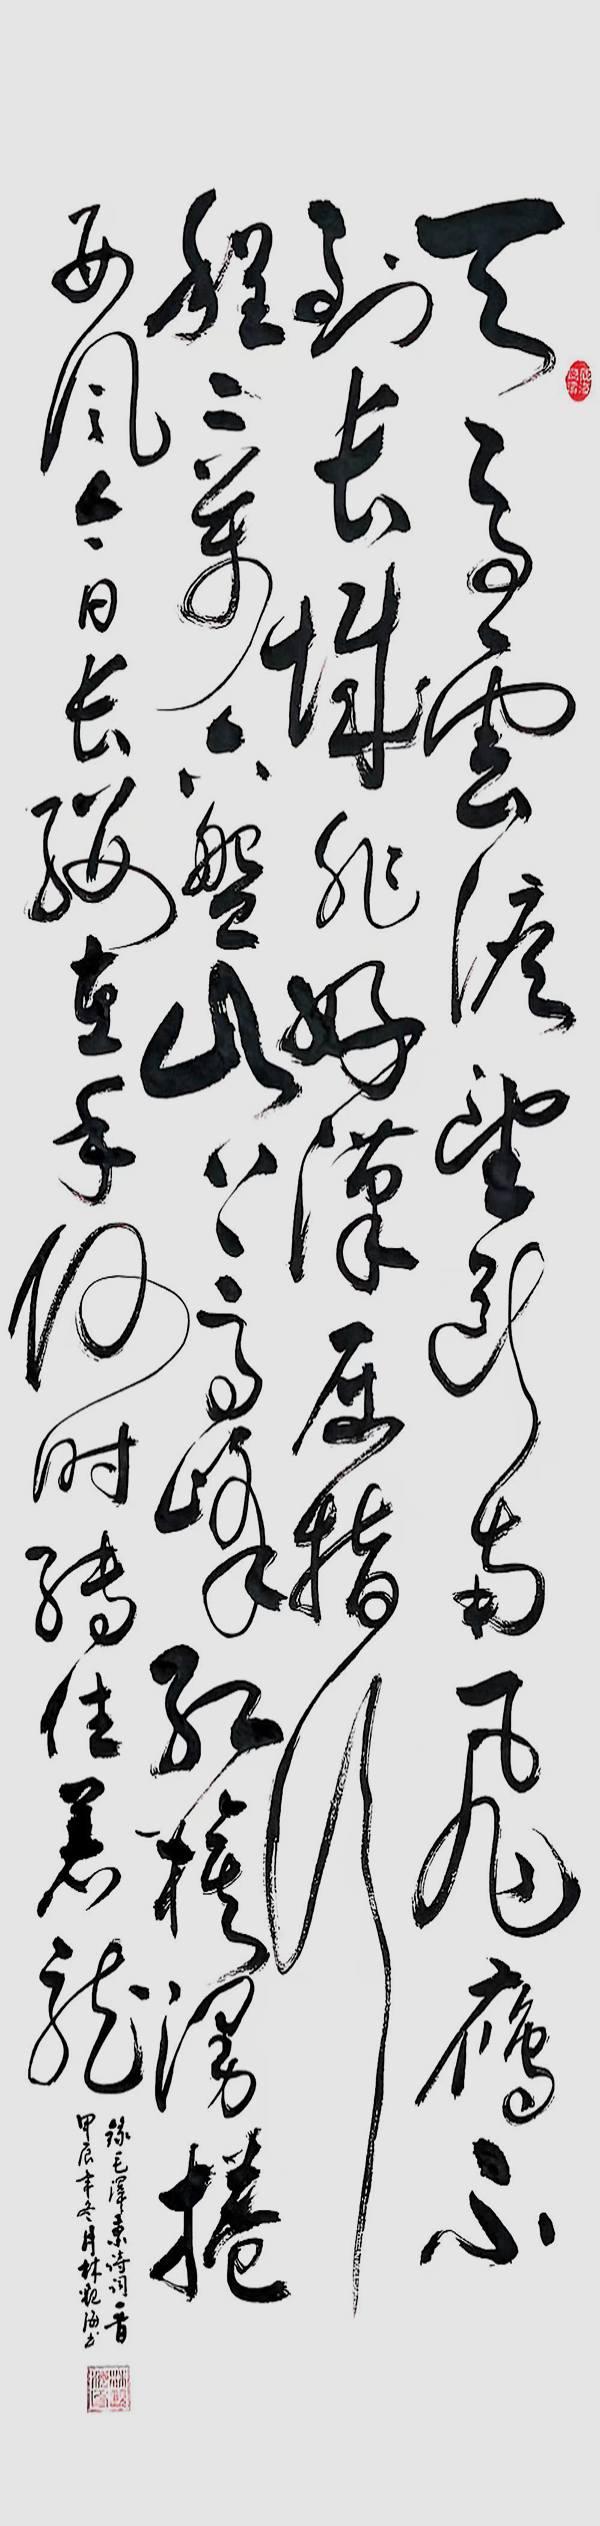 天高雲淡望斷南飛雁不
到长城非好漢屈指行
程二萬六盤山上高峰红旗漫捲
西风今日长缨在手何时缚住苍龙
錄毛澤東诗词一首
甲辰年冬月林觀海书